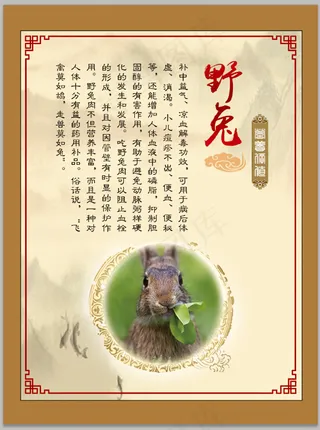 野兔
营养价值
补中益气、凉血解毒功效，可用于病后体
虚、消渴、小儿痘疹不出、便血、便秘
等，还能增加人体血液中的磷脂，抑制胆
固醇的有害作用，有助于避免动脉粥样硬
化的发生和发展。吃野兔肉可以阻止血栓
的形成，并且对血管壁有明显的保护作
用。野兔肉不但营养丰富，而且是一种对
人体十分有益的药用补品。俗话说，“飞
禽莫如鸪，走兽莫如兔”。